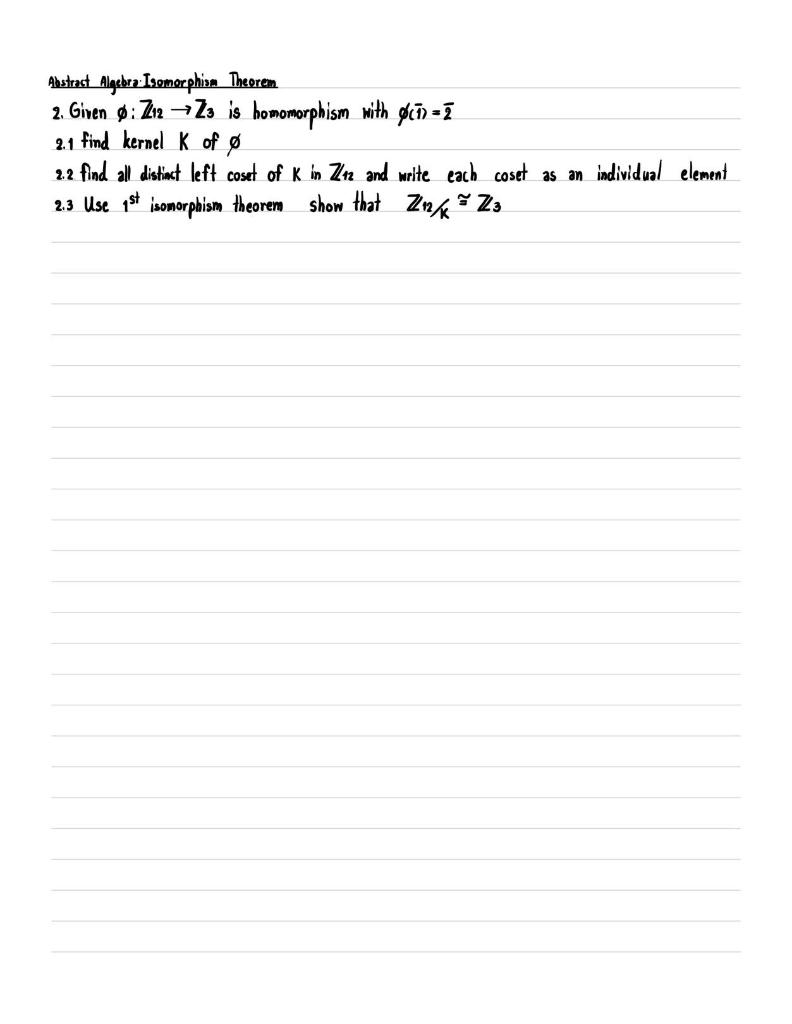 Abstract Algebra: Isomorphism Theorem
2. Given ø: ℤ12 → ℤ3 is homomorphism with ø(1̄) = 2̄
2.1 find kernel K of ø
2.2 find all distinct left coset of K in ℤ12 and write each coset as an individual element
2.3 Use 1st isomorphism theorem show that ℤ12/K ≅ ℤ3